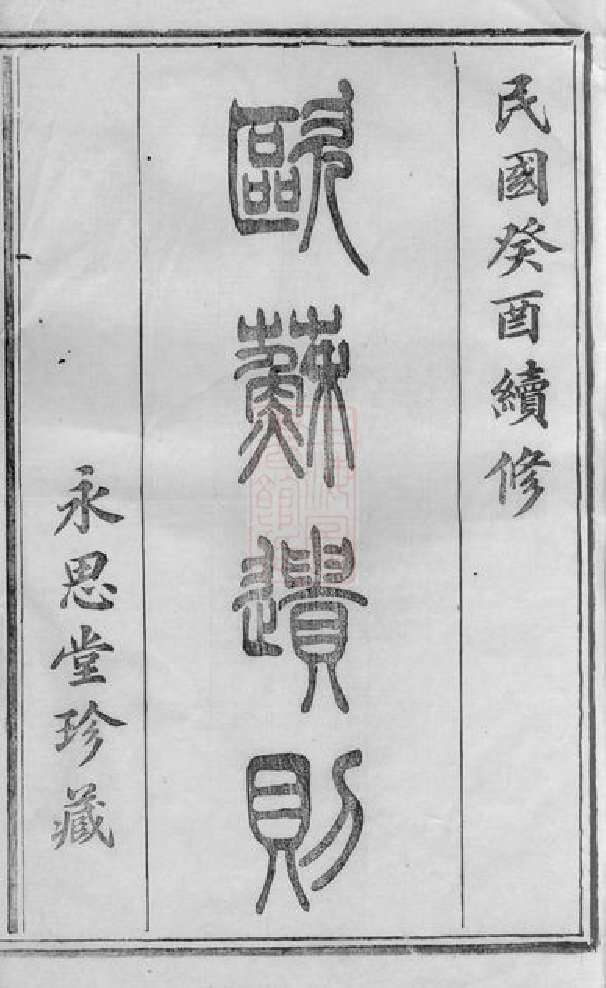 民國癸酉續修
歐蘇遺則
永思堂珍藏